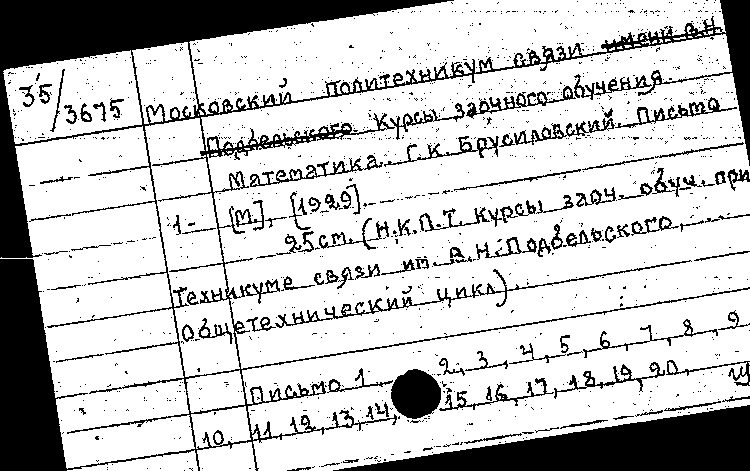 35/3675 Московский политехникум связи имени В.Н.
Подбельского. Курсы заочного обучения
Математика. Г.К. Брусиловский. Письмо
1- [М.], [1929].
25 см. (Н.К.П.Т. Курсы заоч. обуч. при
Техникуме связи им. В.Н. Подбельского, ...
Общетехнический цикл).
Письмо 1, 2, 3, 4, 5, 6, 7, 8, 9
10, 11, 12, 13, 14, 15, 16, 17, 18, 19, 20.